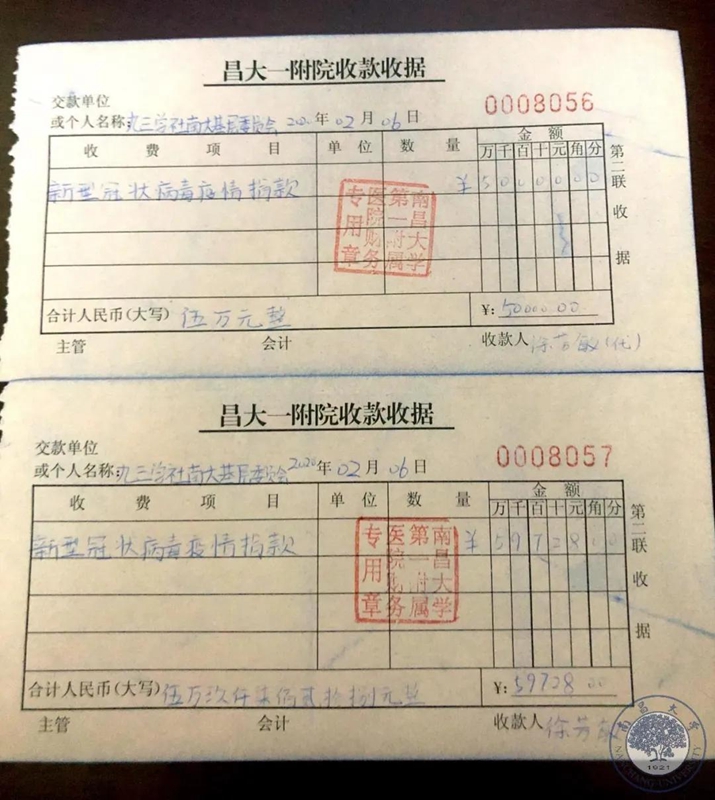 昌大一附院收款收据
0008056
交款单位
或个人名称:九三学社南大基层委员会 2020年02月06日
收费项目 单位 数量 金额
万千百十元角分
新型冠状病毒疫情捐款 ¥5000000
南昌大学
第一附属
医院财务
专用章
第二联 收据
合计人民币(大写) 伍万元整 ¥:50000.00
主管 会计 收款人 徐芳敏(代)
昌大一附院收款收据
0008057
交款单位
或个人名称:九三学社南大基层委员会 2020年02月06日
收费项目 单位 数量 金额
万千百十元角分
新型冠状病毒疫情捐款 ¥5972800
南昌大学
第一附属
医院财务
专用章
第二联 收据
合计人民币(大写) 伍万玖仟柒佰贰拾捌元整 ¥:59728.00
主管 会计 收款人 徐芳敏
南昌大学
NANCHANG UNIVERSITY
1921